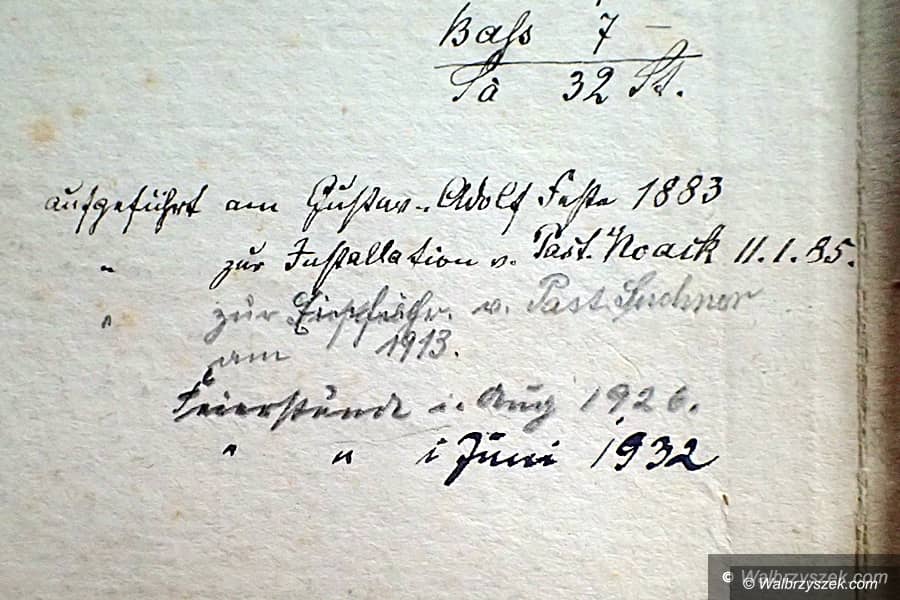 Bass 7 –
Sa 32 St.
aufgeführt am Gustav-Adolf Feste 1883
" zur Installation v. Past. Noack 11.1.85.
" zur Einführ. v. Past.
am 1913.
Feierstunde i. Aug 1926.
" " i Juni 1932
© Walbrzyszek.com
© Walbrzyszek.com